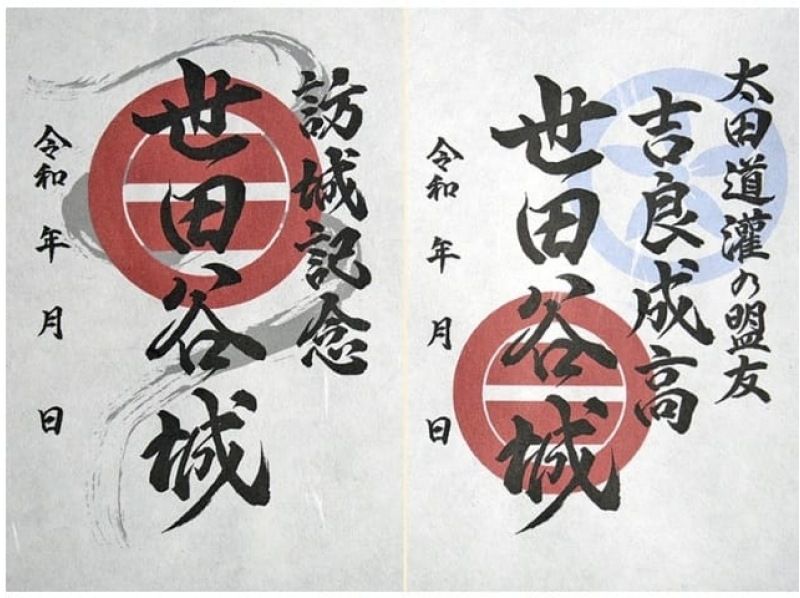 訪城記念
世田谷城
令和 年 月 日
太田道灌の盟友
吉良成高
世田谷城
令和 年 月 日